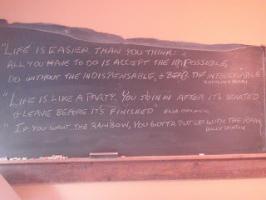 "LIFE IS EASIER THAN YOU THINK:
ALL YOU HAVE TO DO IS ACCEPT THE IMPOSSIBLE,
DO WITHOUT THE INDISPENSABLE, & BEAR THE INTOLERABLE"
"LIFE IS LIKE A PARTY. YOU JOIN IN AFTER IT'S STARTED
& LEAVE BEFORE IT'S FINISHED"
"IF YOU WANT THE RAINBOW, YOU GOTTA PUT UP WITH THE RAIN"